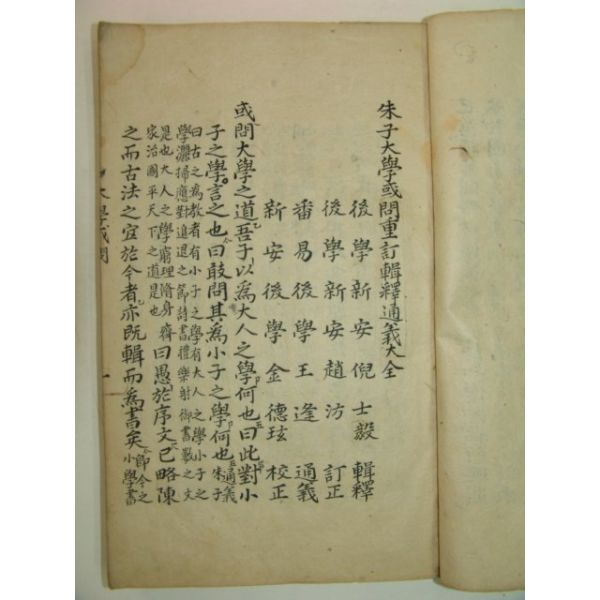 朱子大學或問重訂輯釋通義大全
後學新安倪士毅輯釋
後學新安趙汸訂正
番易後學王逢通義
新安後學金德玹校正
或問大學之道吾子以爲大人之學何也曰此對小
子之學言之也曰敢問其爲小子之學何也通義朱子
曰古之爲教者有小子之學有大人之學小子之
學灑掃應對進退之節詩書禮樂射御書數之文
是也大人之學窮理脩身齊
家治國平天下之道是也曰愚於序文已略陳
之而古法之宜於今者亦既輯而爲書矣節今之
小學書
大學或問
一